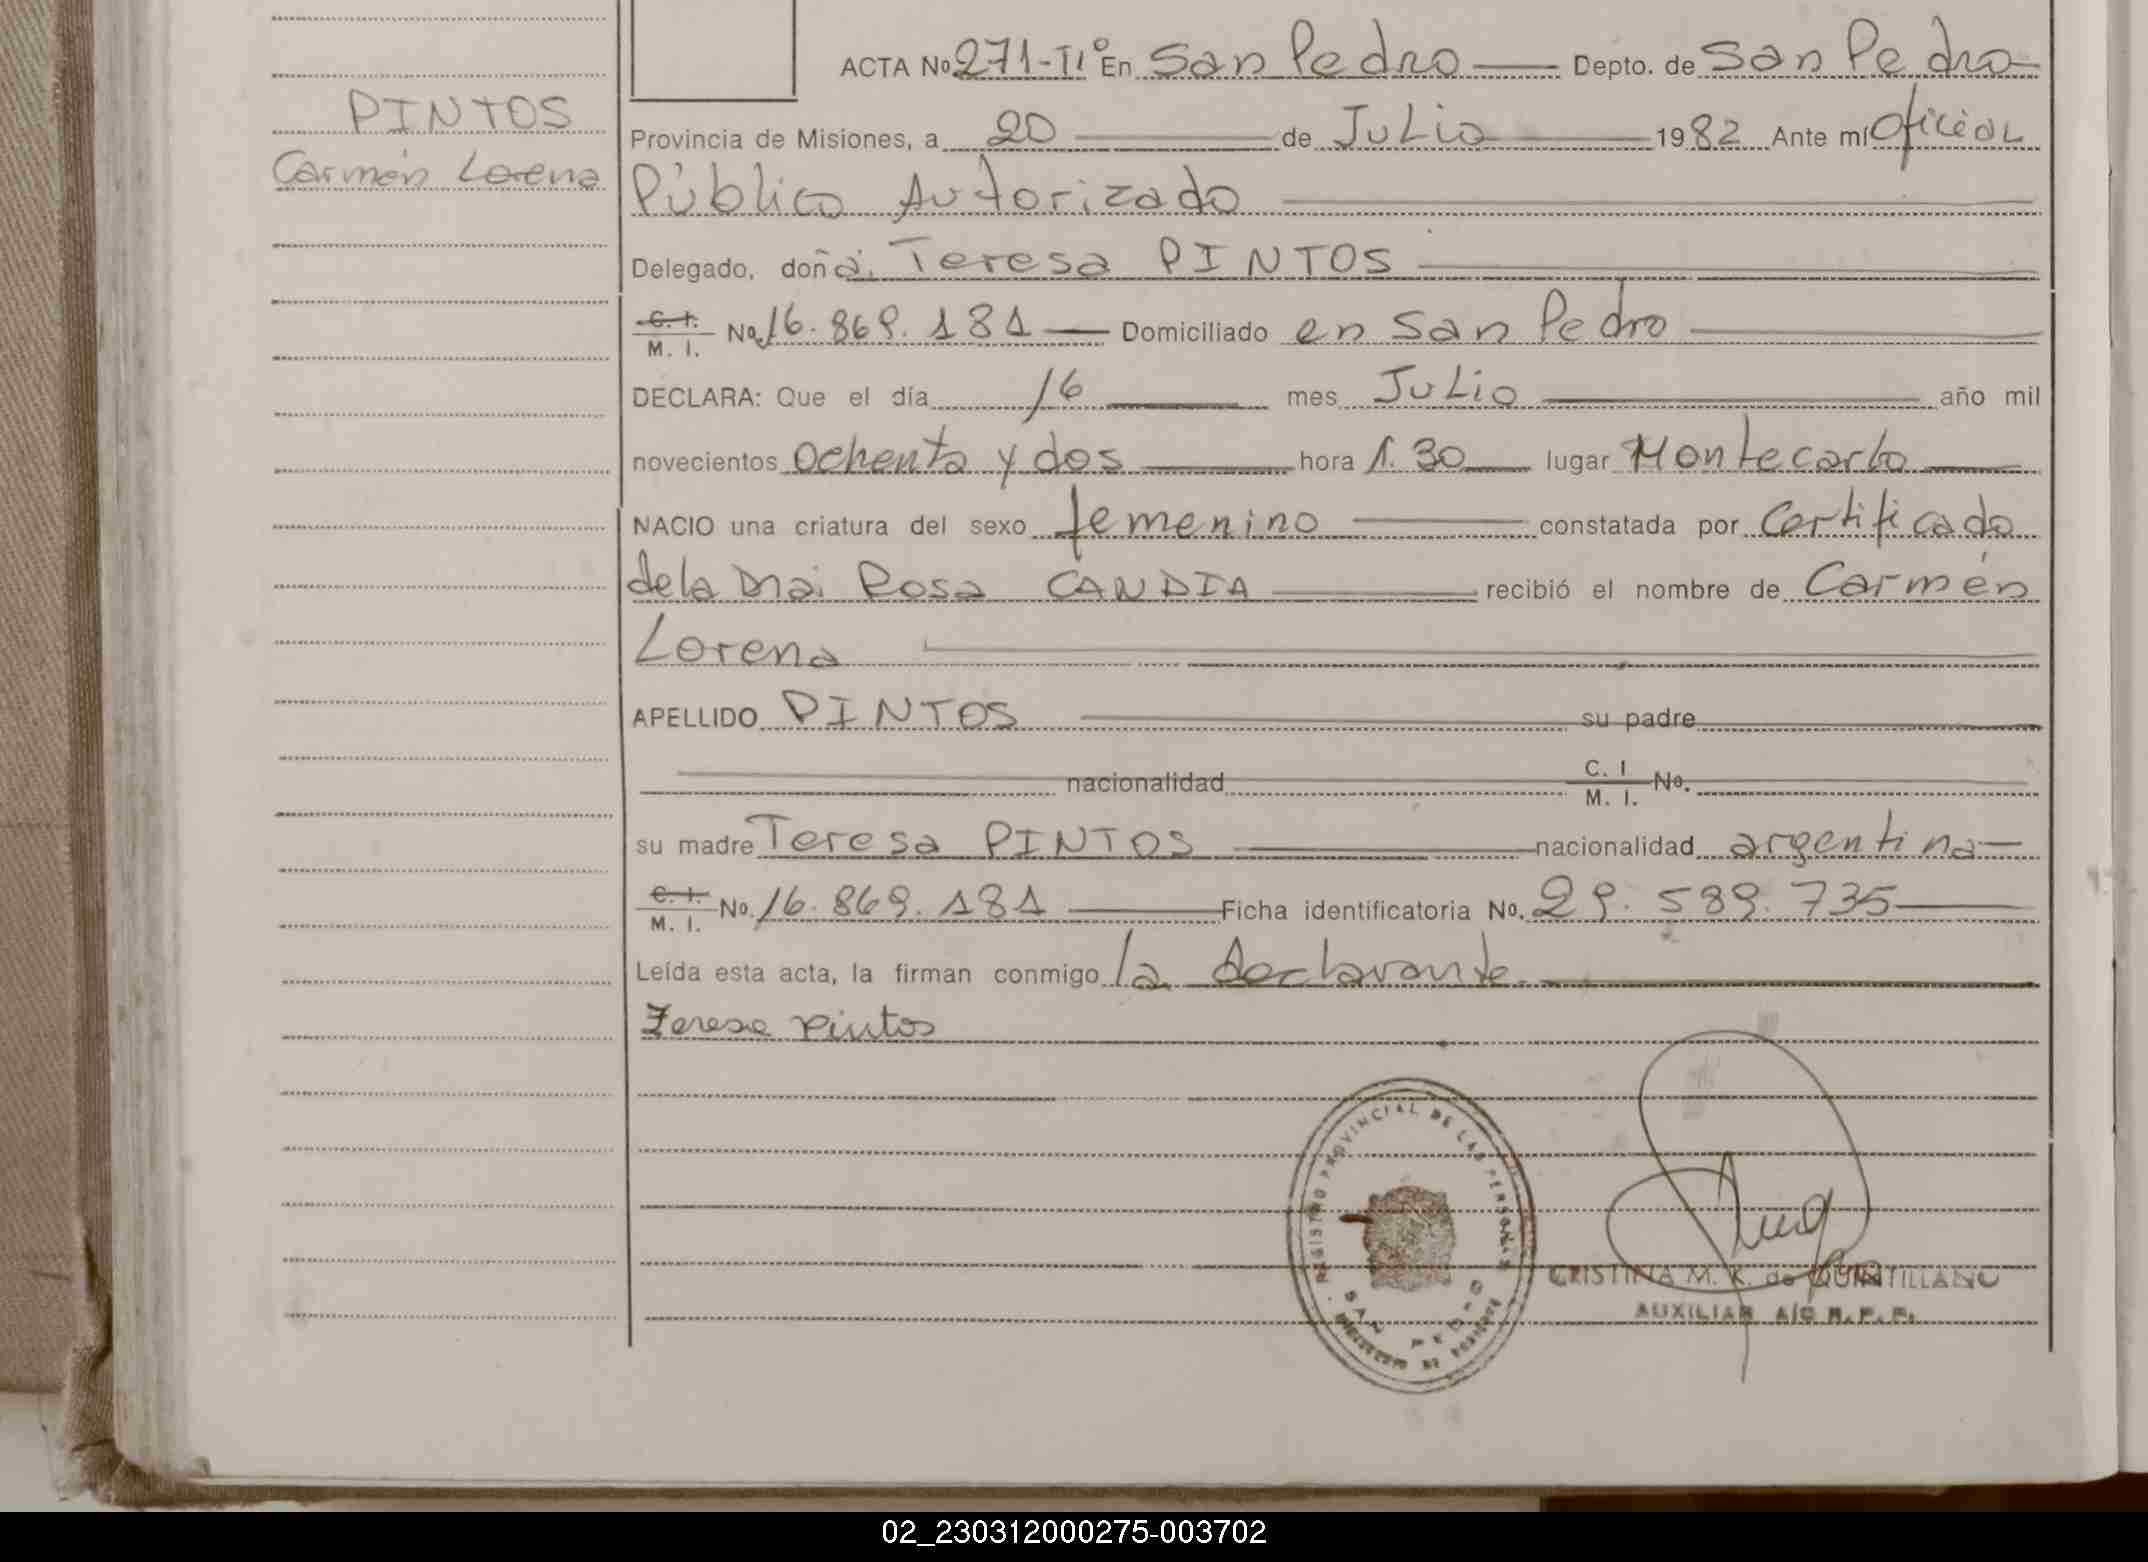 ACTA No 271-TIº En San Pedro Depto. de San Pedro
PINTOS
Carmén Lorena
Provincia de Misiones, a 20 de Julio 1982 Ante mí Oficial
Público Autorizado
Delegado, doña Teresa PINTOS
C. I. M. I. No. 16.869.181 Domiciliado en San Pedro
DECLARA: Que el día 16 mes Julio año mil
novecientos Ochenta y dos hora 1.30 lugar Montecarlo
NACIO una criatura del sexo femenino constatada por Certificado
de la Rosa CANDIA recibió el nombre de Carmén
Lorena
APELLIDO PINTOS su padre
nacionalidad C. I M. I. No.
su madre Teresa PINTOS nacionalidad argentina
C. I. M. I. No. 16.869.181 Ficha identificatoria No. 29.589.735
Leída esta acta, la firman conmigo la declarante.
Terese Pintos
REGISTRO PROVINCIAL DE LAS PERSONAS
SAN PEDRO
CRISTINA M. K. de QUINTILLANO
AUXILIAR A/C R.P.P.
02_230312000275-003702